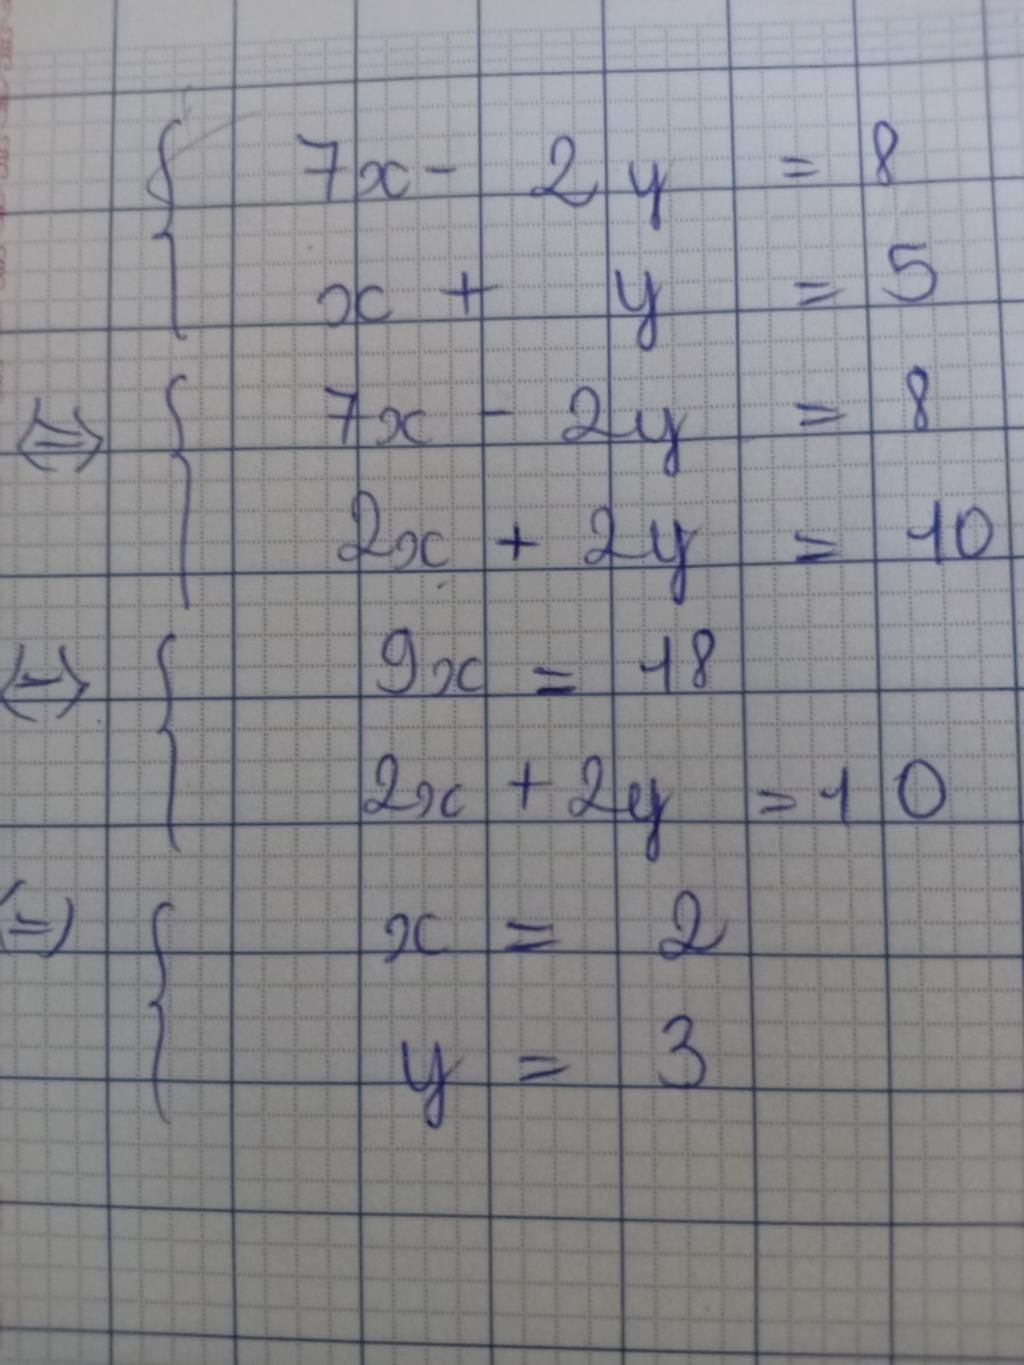 { 7x - 2y = 8
x + y = 5
⇔ { 7x - 2y = 8
2x + 2y = 10
⇔ { 9x = 18
2x + 2y = 10
⇔ { x = 2
y = 3